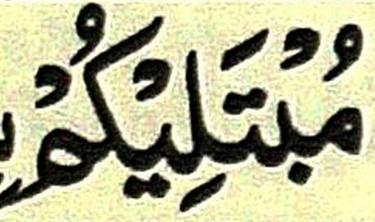 مُبْتَلِيْكُمْ